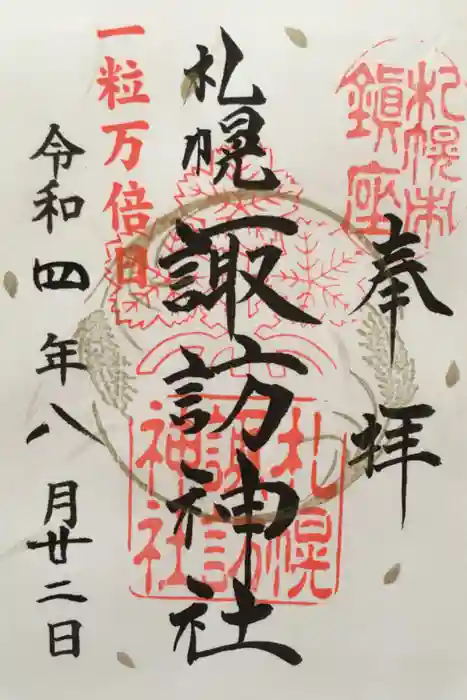 奉拝
札幌市
鎮座
札幌諏訪神社
札幌
諏訪
神社
一粒万倍日
令和四年八月廿二日